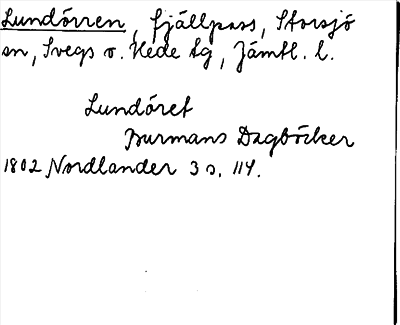 Lundörren, fjällpass, Storsjö
sn, Svegs o. Hede tg, Jämtl. l.
Lundöret
Burmans Dagböcker
1802 Nordlander 3 s. 114.